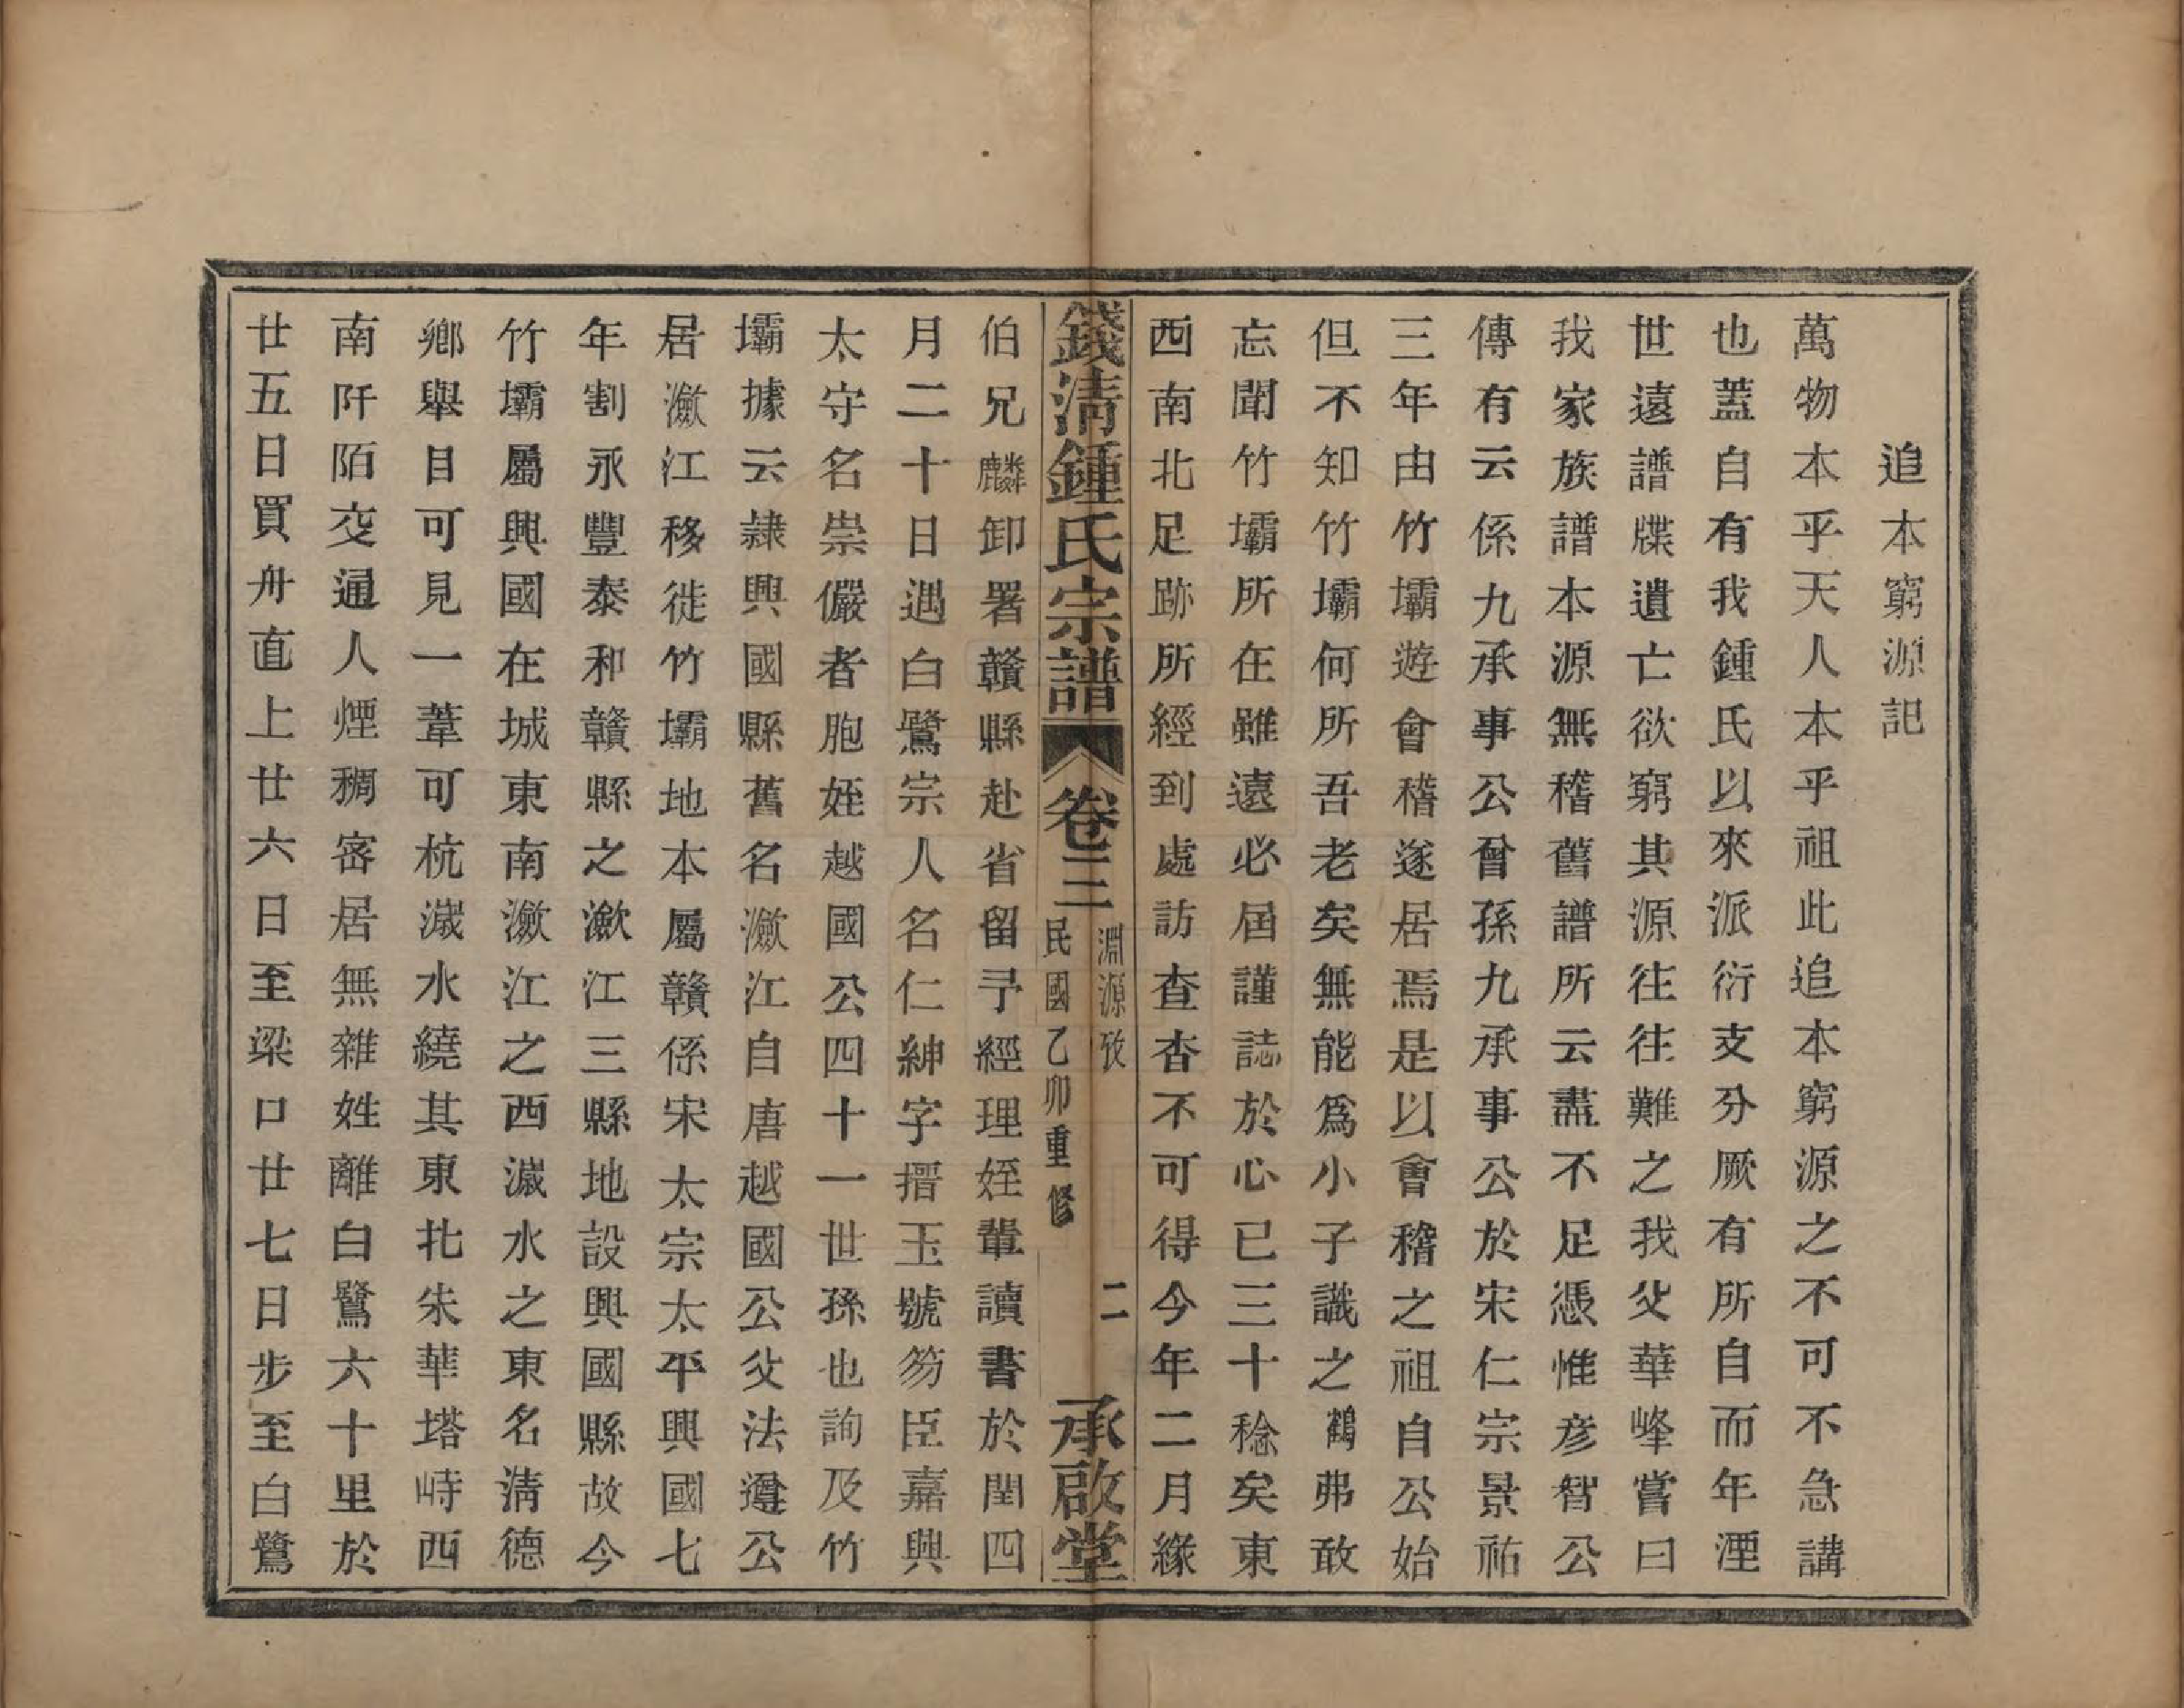 追本窮源記
萬物本乎天人本乎祖此追本窮源之不可不急講
也蓋自有我鍾氏以來派衍支分厥有所自而年湮
世遠譜牒遺亡欲窮其源往往難之我父華峰嘗曰
我家族譜本源無稽舊譜所云盡不足憑惟彥智公
傳有云係九承事公曾孫九承事公於宋仁宗景祐
三年由竹壩遊會稽遂居焉是以會稽之祖自公始
但不知竹壩何所吾老矣無能爲小子識之鶴弗敢
忘聞竹壩所在雖遠必屆謹誌於心已三十稔矣東
西南北足跡所經到處訪查杳不可得今年二月緣
錢清鍾氏宗譜 卷三 淵源攷 民國乙卯重修 二 承啟堂
伯兄麟卸署贛縣赴省留予經理姪輩讀書於閏四
月二十日遇白鷺宗人名仁紳字搢玉號笏臣嘉興
太守名崇儼者胞姪越國公四十一世孫也詢及竹
壩據云隷興國縣舊名瀲江自唐越國公父法遵公
居瀲江移徙竹壩地本屬贛係宋太宗太平興國七
年割永豐泰和贛縣之瀲江三縣地設興國縣故今
竹壩屬興國在城東南瀲江之西濊水之東名清德
鄉舉目可見一葦可杭濊水繞其東北朱華塔峙西
南阡陌交通人煙稠密居無雜姓離白鷺六十里於
廿五日買舟直上廿六日至梁口廿七日步至白鷺